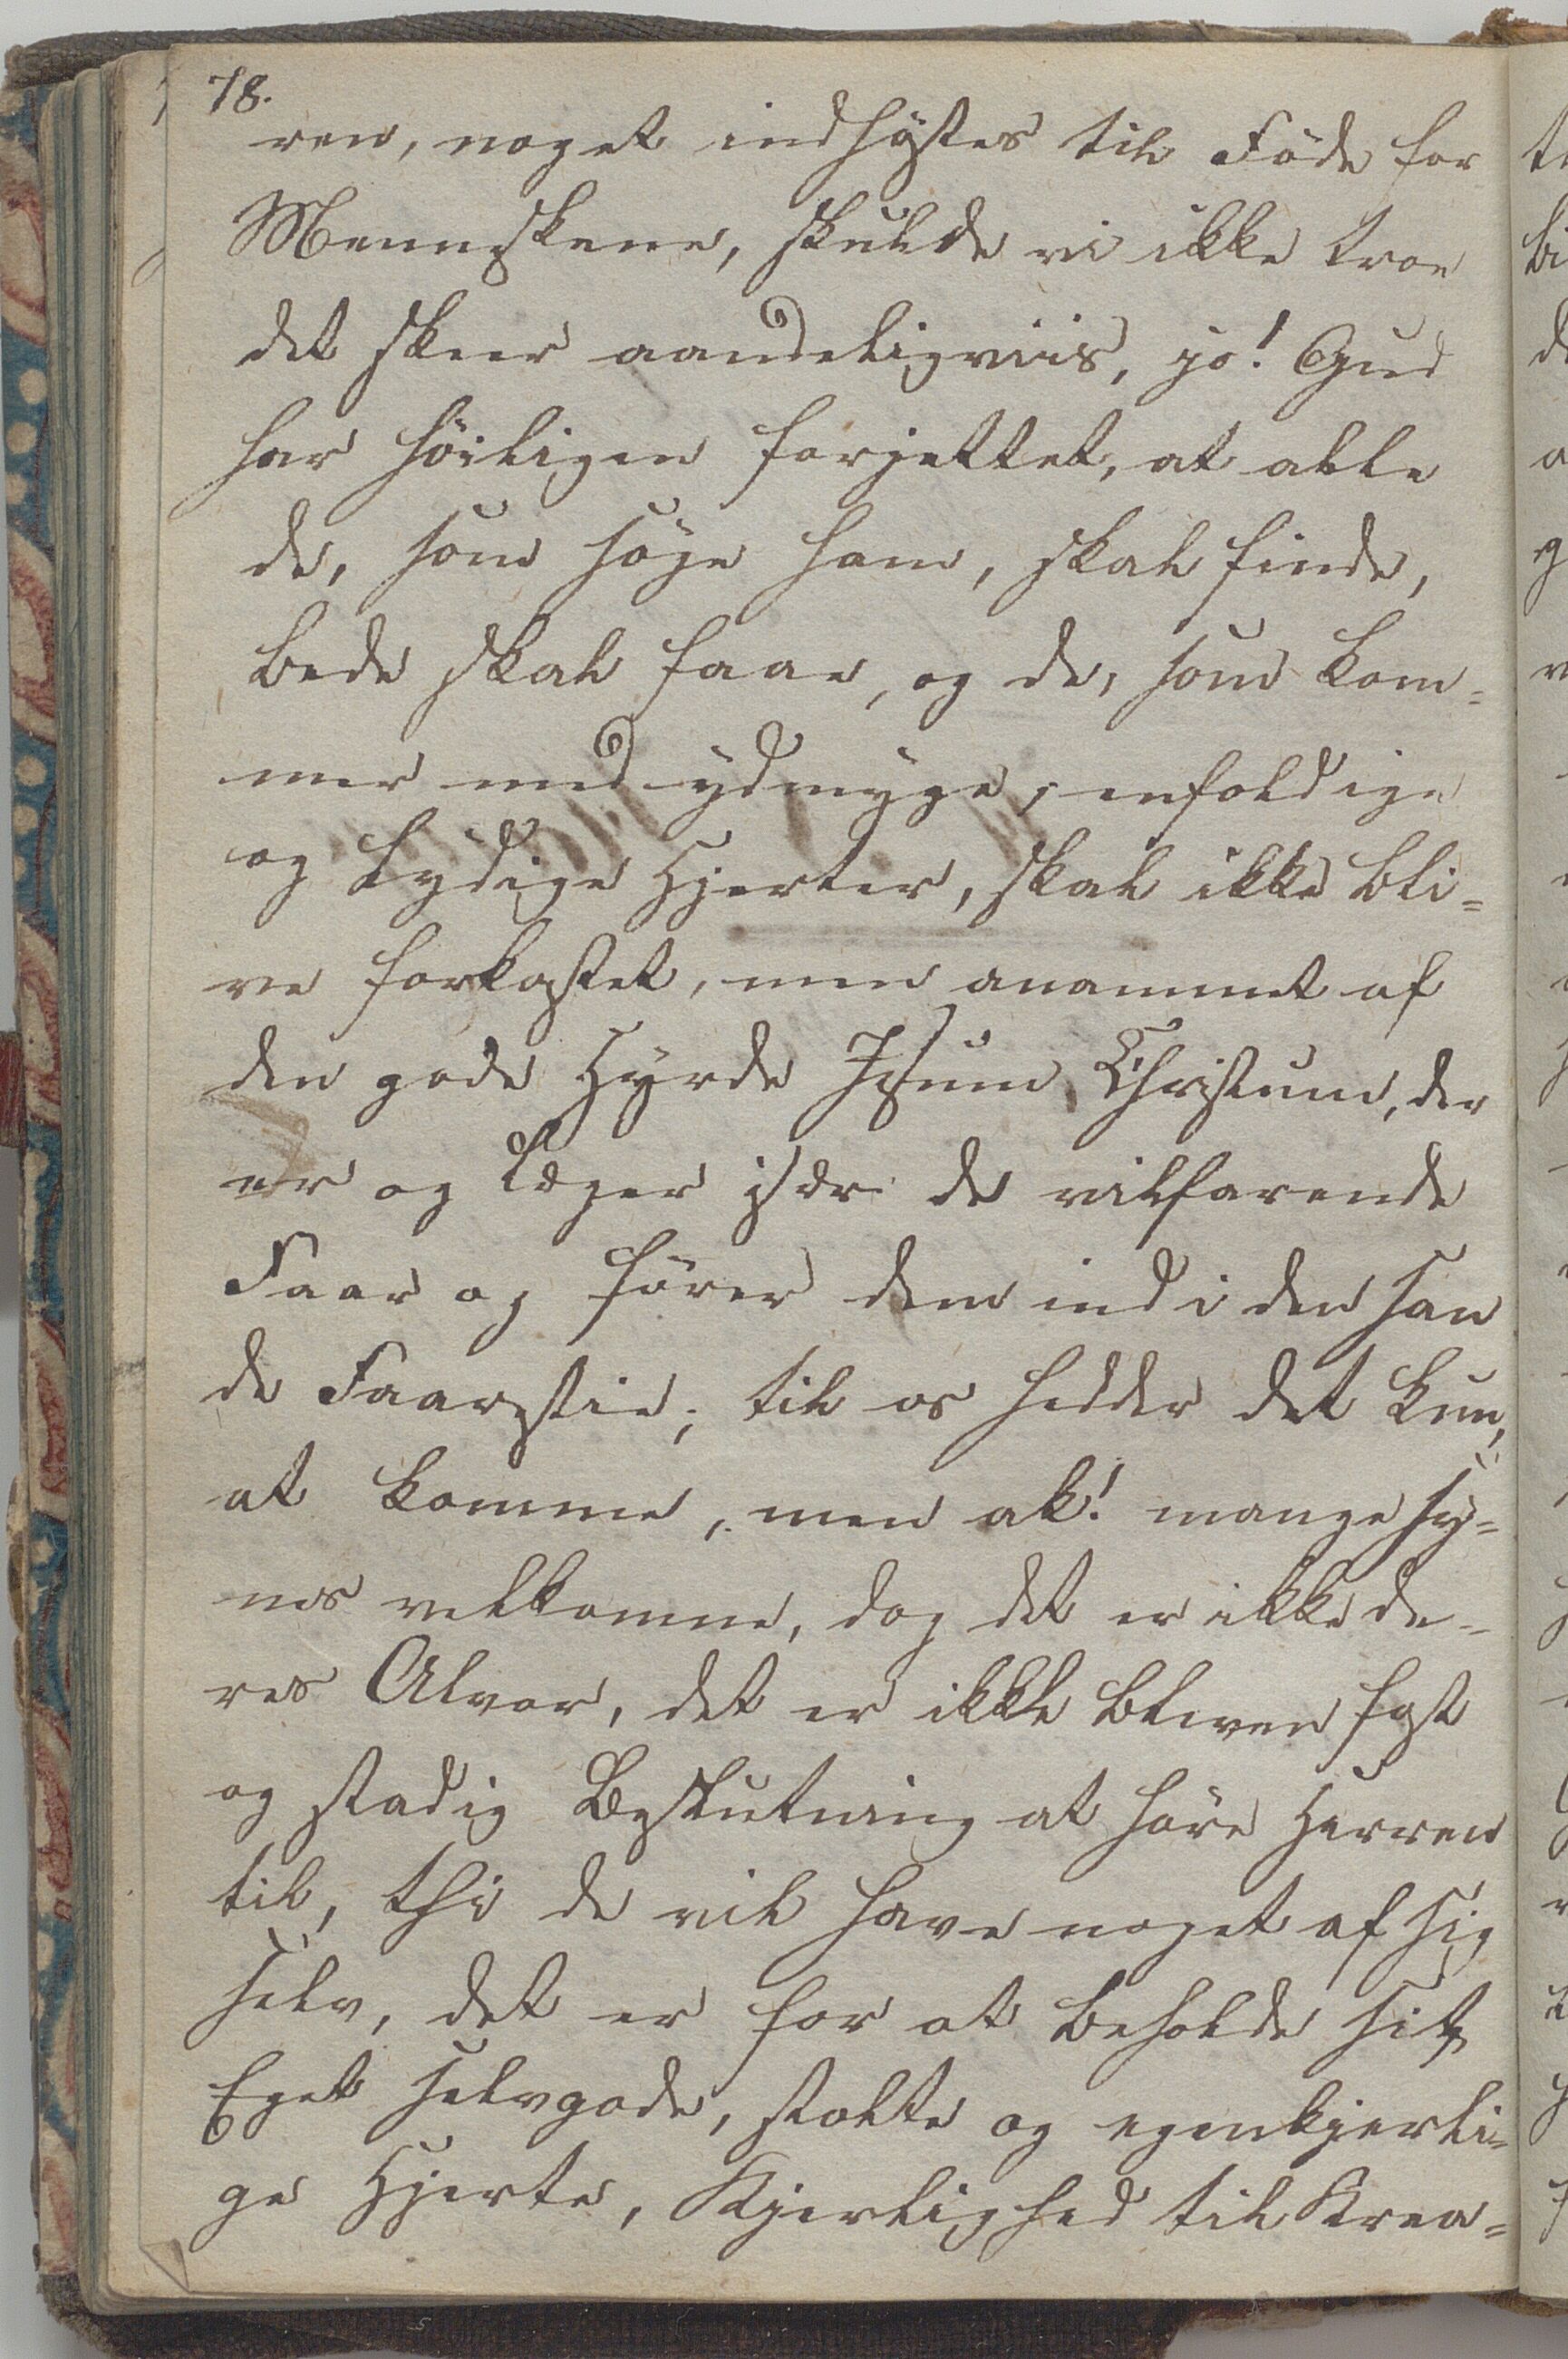 78.
ren, noget indhöstes til Föde for
Menneskene, skulde vi ikke troe
det skeer aandeligviis, jo! Gud
har höiligen forjettet, at alle
de, som söge ham, skal finde,
bede skal faae, og de, som kom-
mer med ydmyge, enfoldige
og lydige Hjerter, skal ikke bli-
ve forkastet, men anammet af
den gode Hyrde Jesum Christum, der
er og Læger især de vildfarende
Faar og fører dem ind i den san
de Faarestie; til os hedder det kun,
at komme, men ak! mange sy-
nes velkomne, dog det er ikke de-
res Alvor, det er ikke bleven fast
og stadig Beslutning at höre Herren
til, thi de vil have noget af sig
selv, det er for at beholde sit
Eget selvgode, stolte og egenkjerli-
ge Hjerte, Kjerlighed til Krea-